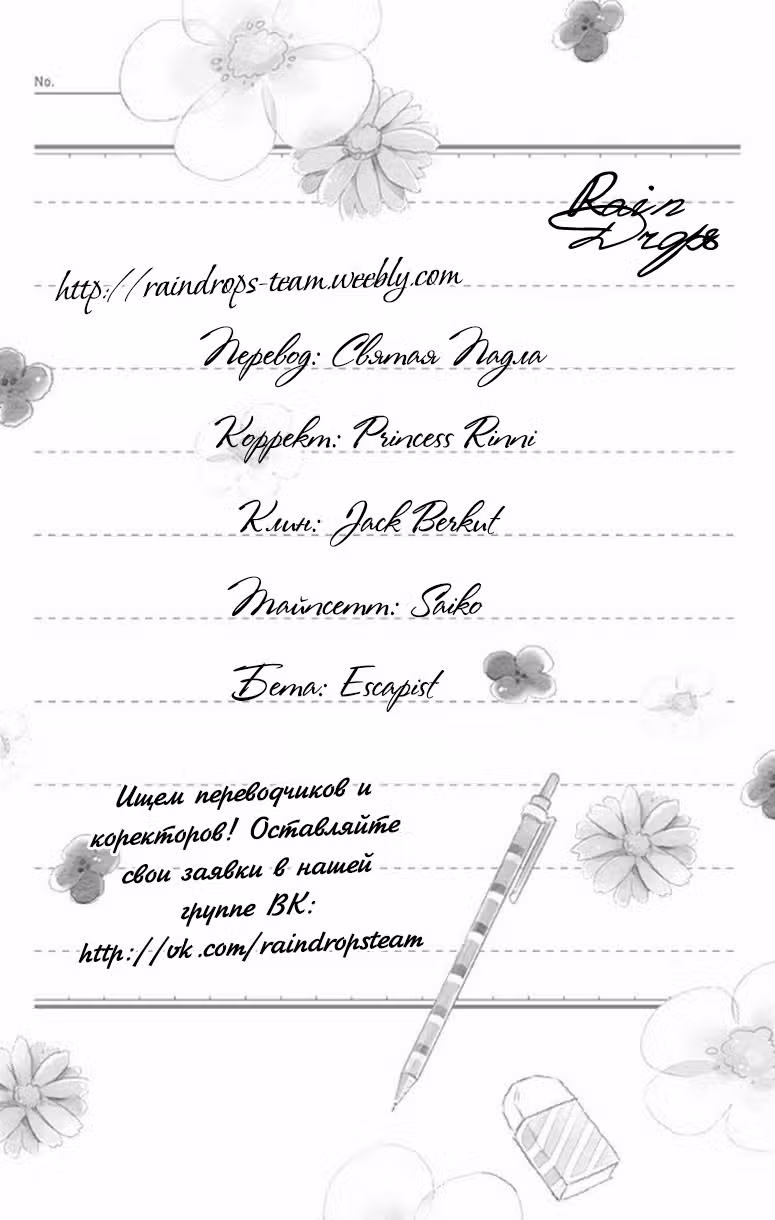 No.
Rain
Drops
http://raindrops-team.weebly.com
Перевод: Святая Падла
Коррект: Princess Rinni
Клин: Jack Berkut
Тайпсетт: Saiko
Бета: Escapist
Ищем переводчиков и
коректоров! Оставляйте
свои заявки в нашей
группе ВК:
http://vk.com/raindropsteam